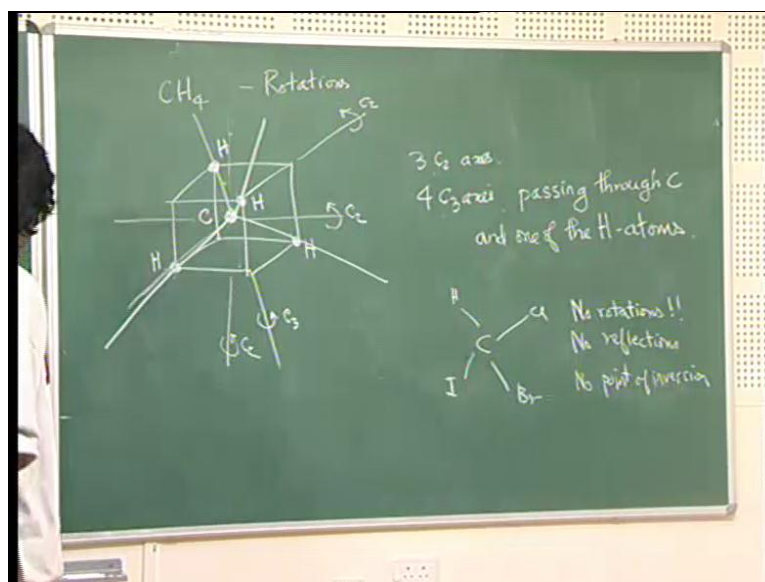 CH4 – Rotations
C2
H
H
C
C2
H
H
C3
C2
3 C2 axes.
4 C3 axis, passing through C
and one of the H-atoms.
H
Cl
C
I
Br
No rotations!!
No reflections
No point of inversion